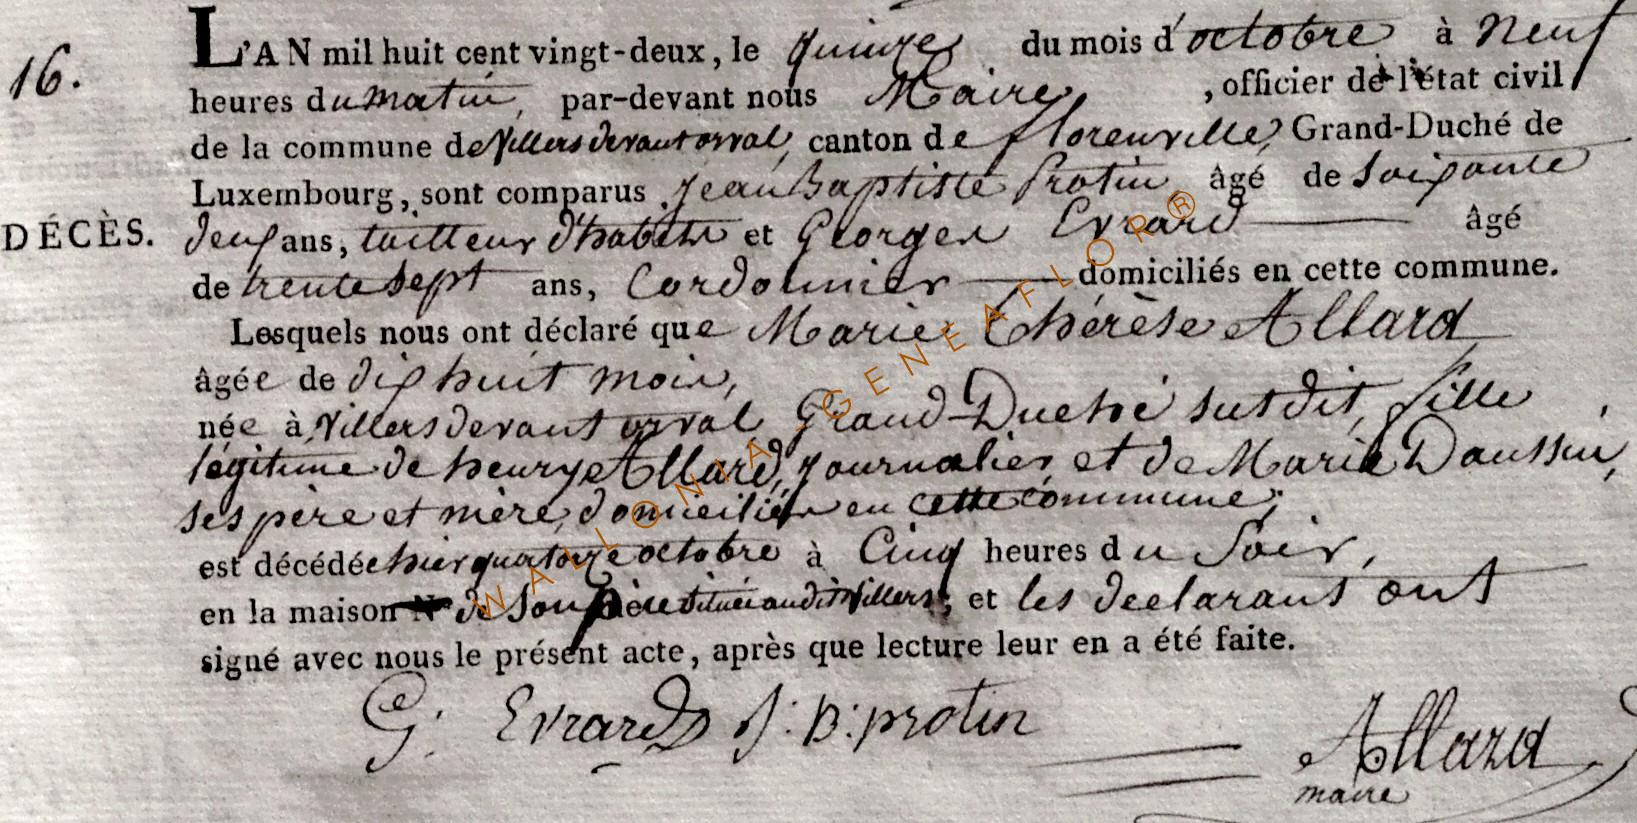 16.
L'AN mil huit cent vingt-deux, le quinze du mois d'octobre à neuf
heures du matin, par-devant nous Maire, officier de l'état civil
de la commune de Villers devant orval, canton de florenville, Grand-Duché de
Luxembourg, sont comparus Jean Baptiste Protin âgé de soixante
DÉCÈS.
deux ans, tailleur d'habits et Georges Evrard âgé
de trente sept ans, Cordonnier domiciliés en cette commune.
Lesquels nous ont déclaré que Marie Thérèse Allard
âgée de dix huit mois,
née à Villers devant orval Grand-Duché susdit, fille
légitime de henry Allard, journalier et de Marie Daussin,
ses père et mère, domiciliés en cette commune,
est décédée hier quatorze octobre à Cinq heures du Soir,
en la maison N° de son père située audit Villers, et les declarants ont
signé avec nous le présent acte, après que lecture leur en a été faite.
G: Evrard J: B: protin
Allard
maire
WALLONIA - GENEAFLOR ®